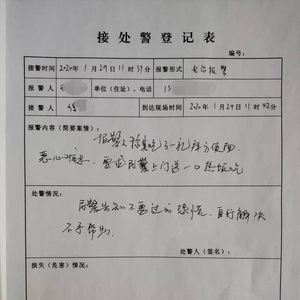 接处警登记表
编号：
接警时间 2020年1月29日11时37分 报警形式 电话报警
报警人 单位（住址）、电话 13
接警人 到达现场时间 2020年1月29日11时42分
报警内容（简要案情）：
报警人称自己吃了一礼拜方便面，
恶心难受，需要民警上门送一口热饭吃
处警情况：
民警告知不要过分恐慌，自行解决
不予帮助。
处警人（签名）：
损失（危害）情况：